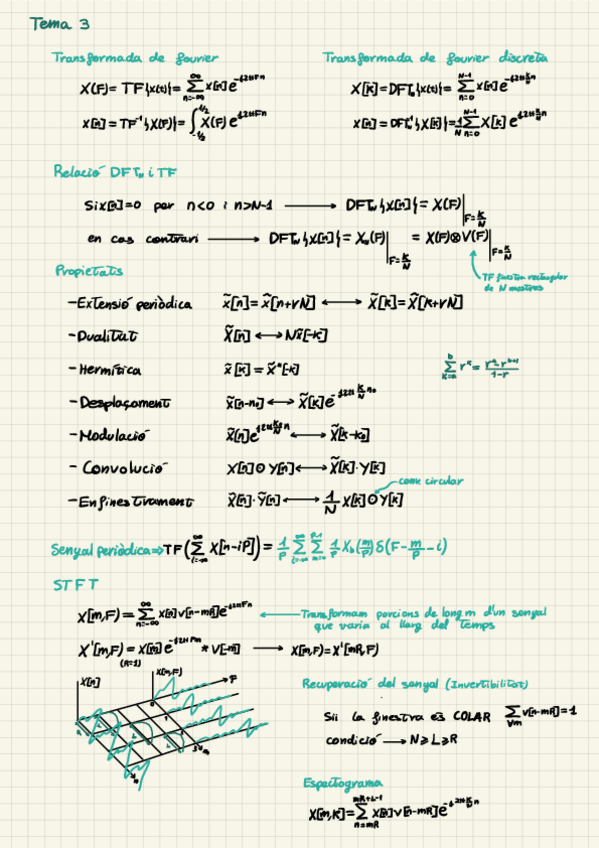 Tema 3
Transformada de fourier
X(F)= TF{x(t)}= ∑_{n=-∞}^{∞} x[n]e^{-j2πFn}
x[n]= TF⁻¹{X(F)}= ∫_{-1/2}^{1/2} X(F)e^{j2πFn}
Transformada de fourier discreta
X[k]=DFT_N{x(t)}= ∑_{n=0}^{N-1} x[n]e^{-j2π(k/N)n}
x[n]= DFT_N⁻¹{X[k]}= 1/N ∑_{n=0}^{N-1} X[k] e^{j2π(k/N)n}
Relació DFT_N i TF
Si x[n]=0 per n<0 i n>N-1 ⟶ DFT_N{x[n]}= X(F)|_{F=k/N}
en cas contrari ⟶ DFT_N{x[n]}= X_N(F)|_{F=k/N} = X(F)⊗V(F)|_{F=k/N}
TF finestra rectangular
de N mostres
Propietats
-Extensió periòdica x̃[n]= x̃[n+rN] ⟷ X̃[k]= X̃[k+rN]
-Dualitat X̃[n] ⟷ Nx̃[-k]
-Hermítica x̃[k] = x̃*[-k]
∑_{k=a}^{b} r^k = (r^a - r^{b+1})/(1-r)
-Desplaçament x̃[n-n₀] ⟷ X̃[k]e^{-j2π(k/N)n₀}
-Modulació x̃[n]e^{j2π(k₀/N)n} ⟷ X̃[k-k₀]
-Convolució X[n]⊙Y[n] ⟷ X̃[k]·Y[k]
-Enfinestrament x̃[n]·ỹ[n] ⟷ 1/N X[k]⊙Y[k]
conv circular
Senyal periòdica⇒TF(∑_{i=-∞}^{∞} X[n-iP])= 1/P ∑_{i=-∞}^{∞} ∑_{m=0}^{P-1} 1/P X_b(m/P) δ(F-m/P-i)
STFT
X[m,F]= ∑_{n=-∞}^{∞} x[n]v[n-mR]e^{-j2πFn} ⟵ Transformam porcions de long m d'un senyal
que varia al llarg del temps
X'[m,F)= x[m]e^{-j2πFm} * v[-m] ⟶ X[m,F)=X'[mR,F)
(R=1)
X[n]
X[m,F)
F
m
n
Recuperació del senyal (Invertibilitat)
Sii la finestra és COLAR ∑_{∀m} v[n-mR]=1
condició ⟶ N≥L≥R
Espectograma
X[m,k]= ∑_{n=mR}^{mR+L-1} x[n]v[n-mR]e^{-j2π(k/N)n}